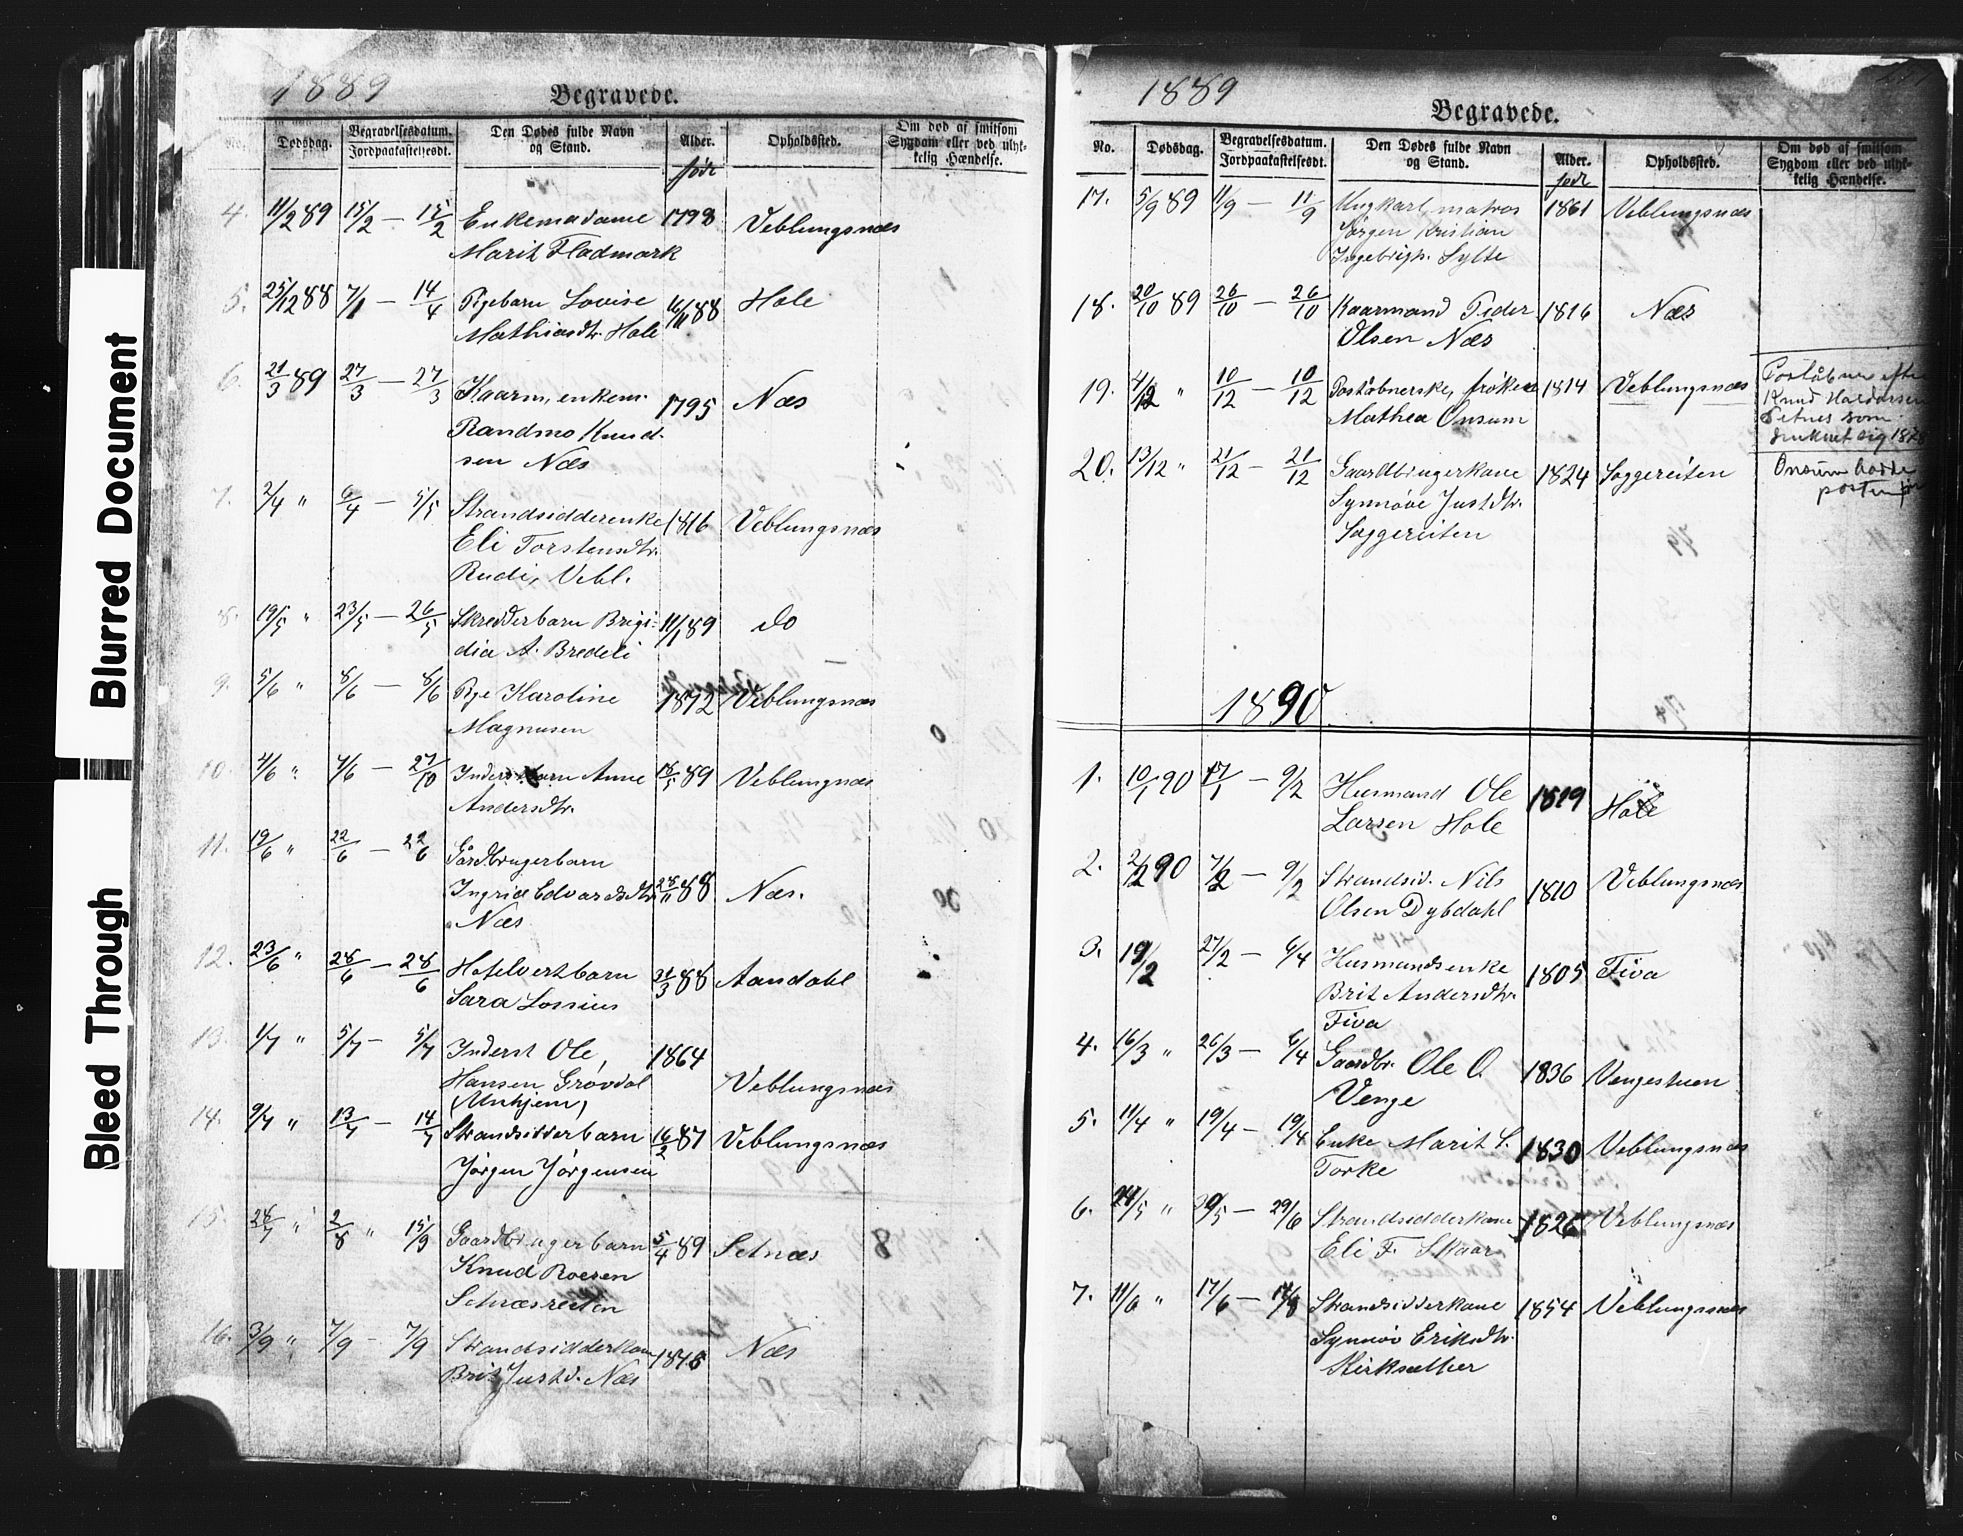 Blurred Document
Bleed Through
1889
Begravede.
No. Dødsdag. Begravelsesdatum. Jordpaakastelsesdt. Den Dødes fulde Navn og Stand. Alder. født Opholdssted. Om død af smitsom Sygdom eller ved ulykkelig Hændelse.
4. 11/2 89 15/2 — 15/2 Enkemadame 1798 Veblungsnæs
Marit Fladmark
5. 25/12 88 7/1 — 14/4 Pigebarn Lovise 16/11 88 Hole
Mathiasdtr. Hole
6. 21/3 89 27/3 — 27/3 Kaarm, enkem. 1795 Næs
Randmo Knud-
sen Næs
7. 2/4 " 6/4 — 5/5 Strandsidderenke 1816 Veblungsnæs
Eli Torstensdtr.
Rudi, Vebl.
8. 19/5 " 23/5 — 26/5 Skredderbarn Brigi- 11/1 89 do
dia A. Bredeli
9. 5/6 " 8/6 — 8/6 Pge Karoline 1872 Veblungsnæs
Magnusen
10. 4/6 " 7/6 — 27/10 Inderstbarn Anne 15/5 89 Veblungnæs
Andersdtr.
11. 19/6 " 22/6 — 22/6 Gårdbrugerbarn
Ingrid Edvardsdtr. 28/11 88 Næs.
Næs
12. 23/6 " 28/6 — 28/6 Hotelvertbarn 31/3 88 Aandahl
Sara Lossius
13. 1/7 " 5/7 — 5/7 Inderst Ole, 1864
Hansen Grøvdal Veblungsnæs
(Unhjem)
14. 9/7 " 13/7 — 14/7 Strandsidderbarn 16/2 87 Veblungsnæs
Jørgen Jørgensen
15. 28/7 " 2/8 " 15/9 Gaardbrugerbarn 5/4 89 Setnæs
Knud Roesen
Setnæsreiten
16. 3/9 " 7/9 — 7/9 Strandsidderkone Næs
Brit Justd. Næs
1889
Begravede.
No. Dødsdag. Begravelsesdatum. Jordpaakastelsesdt. Den Dødes fulde Navn og Stand. Alder. født Opholdssted. Om død af smitsom Sygdom eller ved ulykkelig Hændelse.
17. 5/9 89 11/9 — 11/9 Ungkarl, matros 1861 Veblungsnæs
Jørgen Kristian
Ingebrigts. Sylte
18. 20/10 89 26/10 — 26/10 Kaarmand Peder 1816 Næs
Olsen Næs
19. 4/12 " 10/12 — 10/12 Poståbnerske, frøken 1814 Veblungsnæs Poståbner efter
Mathea Onsum Knud Haldorsen
Setnes som
druknet sig 1878
20. 13/12 " 21/12 — 21/12 Gaardbrugerkone 1824 Soggereiten Onsum hadde
Synnøve Justdtr. posten før
Soggereiten
1890
1. 10/1 90 17/1 — 9/2 Husmand Ole 1819 Hole
Larsen Hole
2. 2/2 90 7/2 — 9/2 Strandsid. Nils 1810 Veblungsnæs
Olsen Dybdahl
3. 19/2 27/2 — 6/4 Husmandsenke 1805 Fiva
Brit Andersdtr.
Fiva
4. 16/3 " 26/3 — 6/4 Gaardbr. Ole O. 1836 Vengestuen
Venge
5. 11/4 " 19/4 — 19/4 Enke Marit S. 1830 Veblungsnæs
Torke
6. 24/5 " 30/5 — 29/6 Strandsidderkone 1826 Veblungsnæs
Eli F. Skaar
7. 11/6 " 17/6 — Strandsidderkone 1854 Veblungsnæs
Synnøv Eriksdtr.
Kirksæther